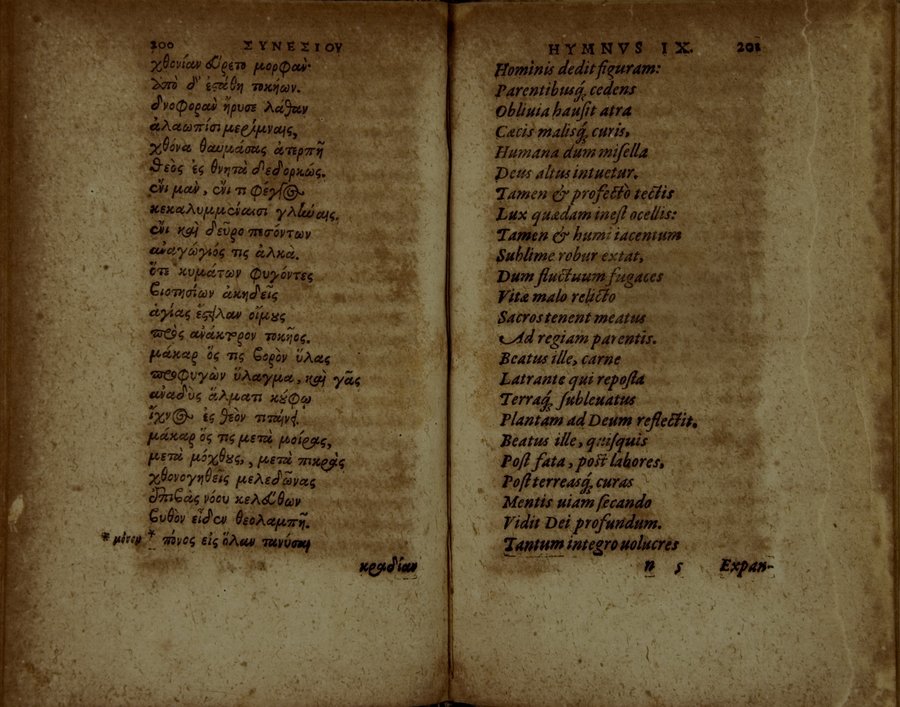 200 ΣΥΝΕΣΙΟΥ
χθονίαν εὕρετο μορφάν·
ἀπὸ δ' ἐστάθη τοκήων.
δνοφορὰν ἤρυσε λάθαν
ἀλαωπίσι μερίμναις,
χθόνα θαυμάσας ἀτερπῆ
θεὸς ἐς θνητὰ δεδορκώς.
ἔνι μαν, ἔνι τι φέγγος
κεκαλυμμέναισι γλήναις.
ἔνι καὶ δεῦρο πεσόντων
ἀναγώγιός τις ἀλκὰ.
ὅτε κυμάτων φυγόντες
βιοτησίων ἀκηδεῖς
ἁγίας ἔστειλαν οἴμους
πρὸς ἀνάκτορον τοκῆος.
μάκαρ ὅς τις βορὸν ὕλας
προφυγὼν ὕλαγμα, καὶ γᾶς
ἀναδὺς ἅλματι κούφῳ
ἴχνος ἐς θεὸν τιταίνει.
μάκαρ ὅς τις μετὰ μοίρας,
μετὰ μόχθους, μετὰ πικρὰς
χθονογηθεῖς μελεδῶνας
ἐπιβὰς νόου κελεύθων
βυθὸν εἶδεν θεολαμπῆ.
* μόνον * πόνος εἰς ὅλαν τανύσαι
κραδίαν
HYMNVS IX. 201
Hominis dedit figuram:
Parentibusq́, cedens
Obliuia hausit atra
Cæcis malisq́, curis,
Humana dum misella
Deus altus intuetur.
Tamen & profecto tectis
Lux quædam inest ocellis:
Tamen & humi iacentum
Sublime robur extat,
Dum fluctuum fugaces
Vitæ malo relicto
Sacros tenent meatus
Ad regiam parentis.
Beatus ille, carne
Latrante qui reposta
Terraq́, subleuatus
Plantam ad Deum reflectit.
Beatus ille, quisquis
Post fata, post labores,
Post terreasq́, curas
Mentis uiam secando
Vidit Dei profundum.
Tantum integro uolucres
n 5 Expan-